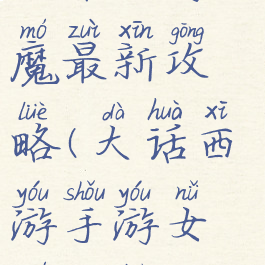 mó zuì xīn gōng
魔最新攻
lüè dà huà xī
略(大话西
yóu shǒu yóu nǚ
游手游女